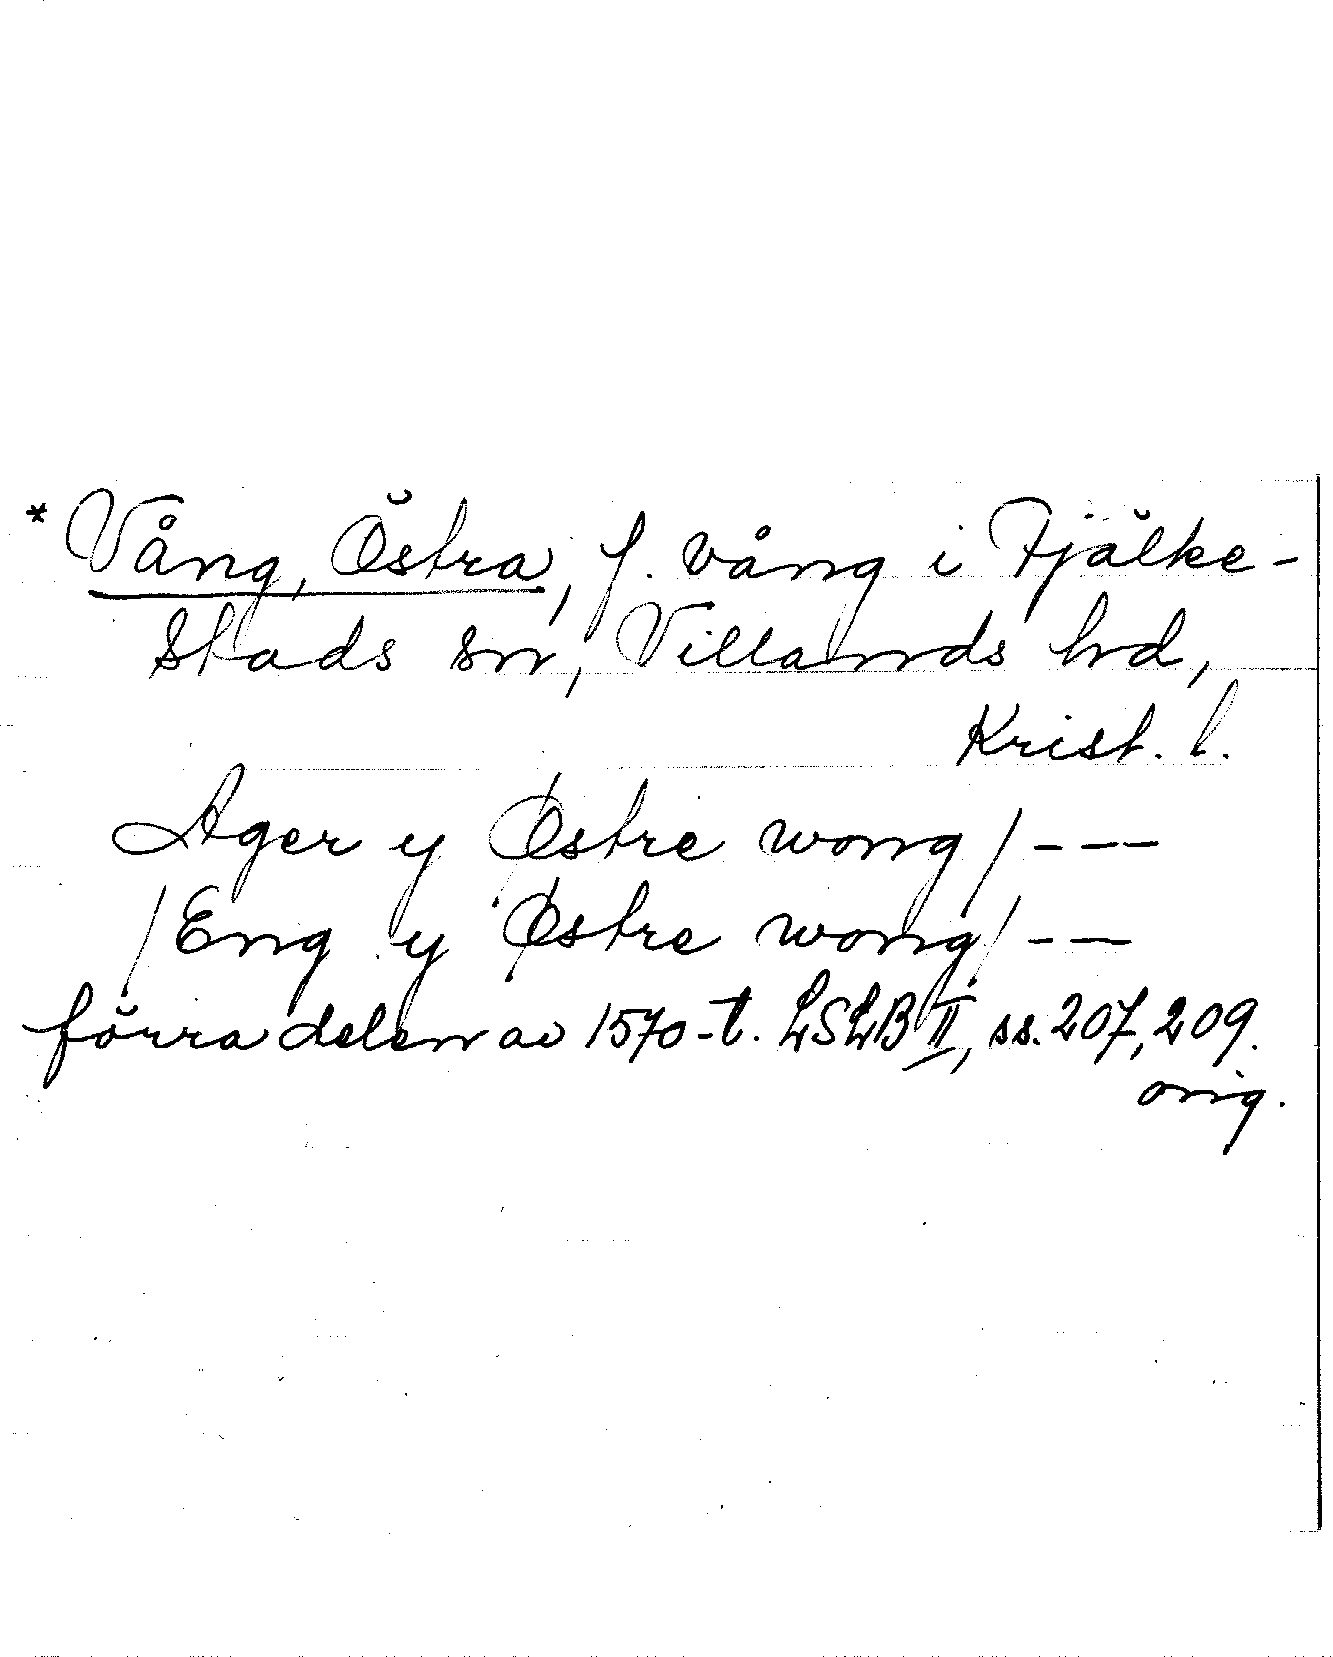 * Vång, Östra, f. vång i Fjälke-
stads sn, Villands hd,
Krist. l.
Ager y Østre wong / - - -
/ Eng y Østre wong / - -
förra delen av 1570-t. LSLB II, ss. 207, 209.
orig.